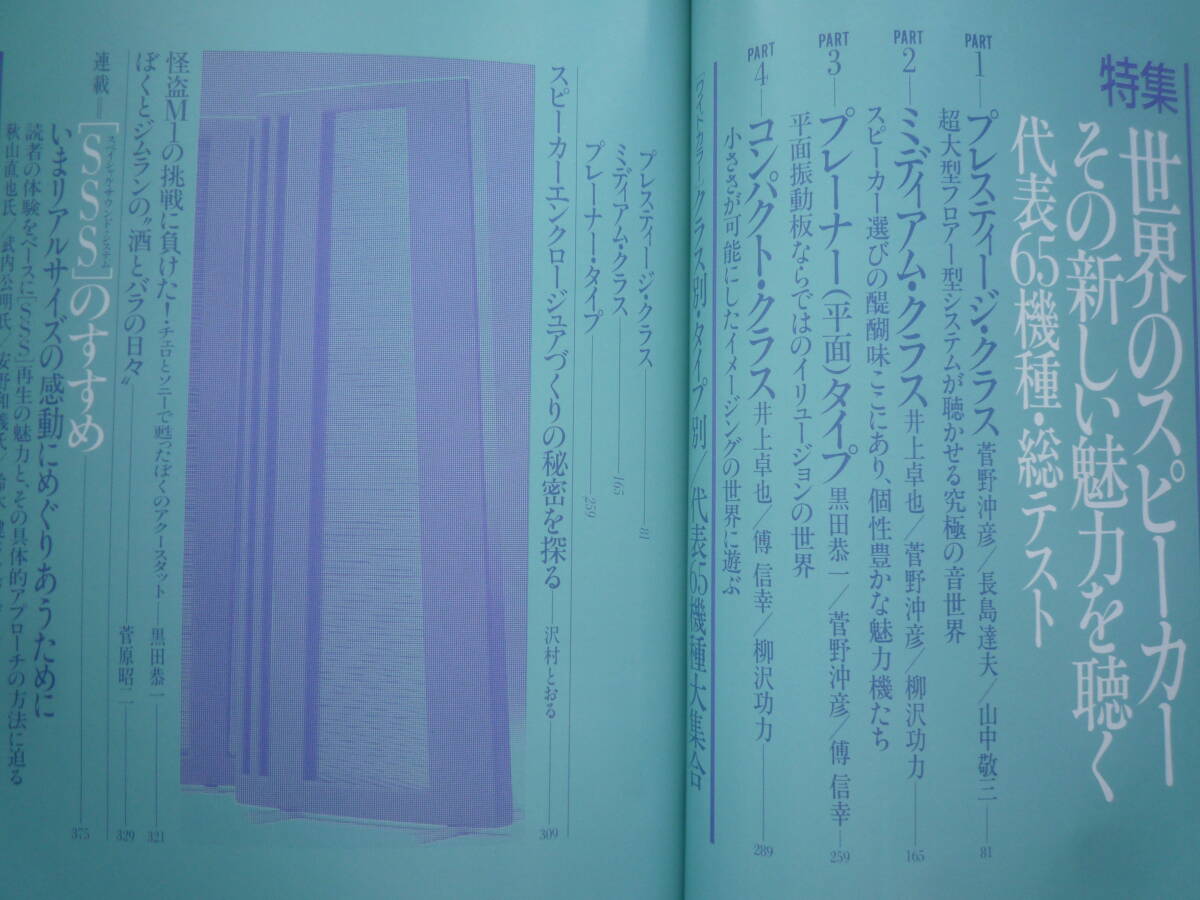 特集
世界のスピーカー
その新しい魅力を聴く
代表65機種・総テスト
PART 1 プレスティージ・クラス 菅野沖彦/長島達夫/山中敬三 81
超大型フロアー型システムが聴かせる究極の音世界
PART 2 ミディアム・クラス 井上卓也/菅野沖彦/柳沢功力 165
スピーカー選びの醍醐味ここにあり、個性豊かな魅力機たち
PART 3 プレーナー(平面)タイプ 黒田恭一/菅野沖彦/傅 信幸 259
平面振動板ならではのイリュージョンの世界
PART 4 コンパクト・クラス 井上卓也/傅 信幸/柳沢功力 289
小ささが可能にしたイメージングの世界に遊ぶ
[ワイドカラー]クラス別・タイプ別/代表65機種大集合
プレスティージ・クラス 81
ミディアム・クラス 165
プレーナー・タイプ 259
スピーカーエンクロージュアづくりの秘密を探る 沢村とおる 309
怪盗M1の挑戦に負けた!・チェロとソニーで甦ったぼくのアクースタット 黒田恭一 321
ぼくとジムランの“酒とバラの日々” 菅原昭二 329
連載 [SSS]のすすめ 375
いまリアルサイズの感動にめぐりあうために
読者の体験をベースに[SSS]再生の魅力と、その具体的アプローチの方法に迫る
秋山直也氏/武内公明氏/